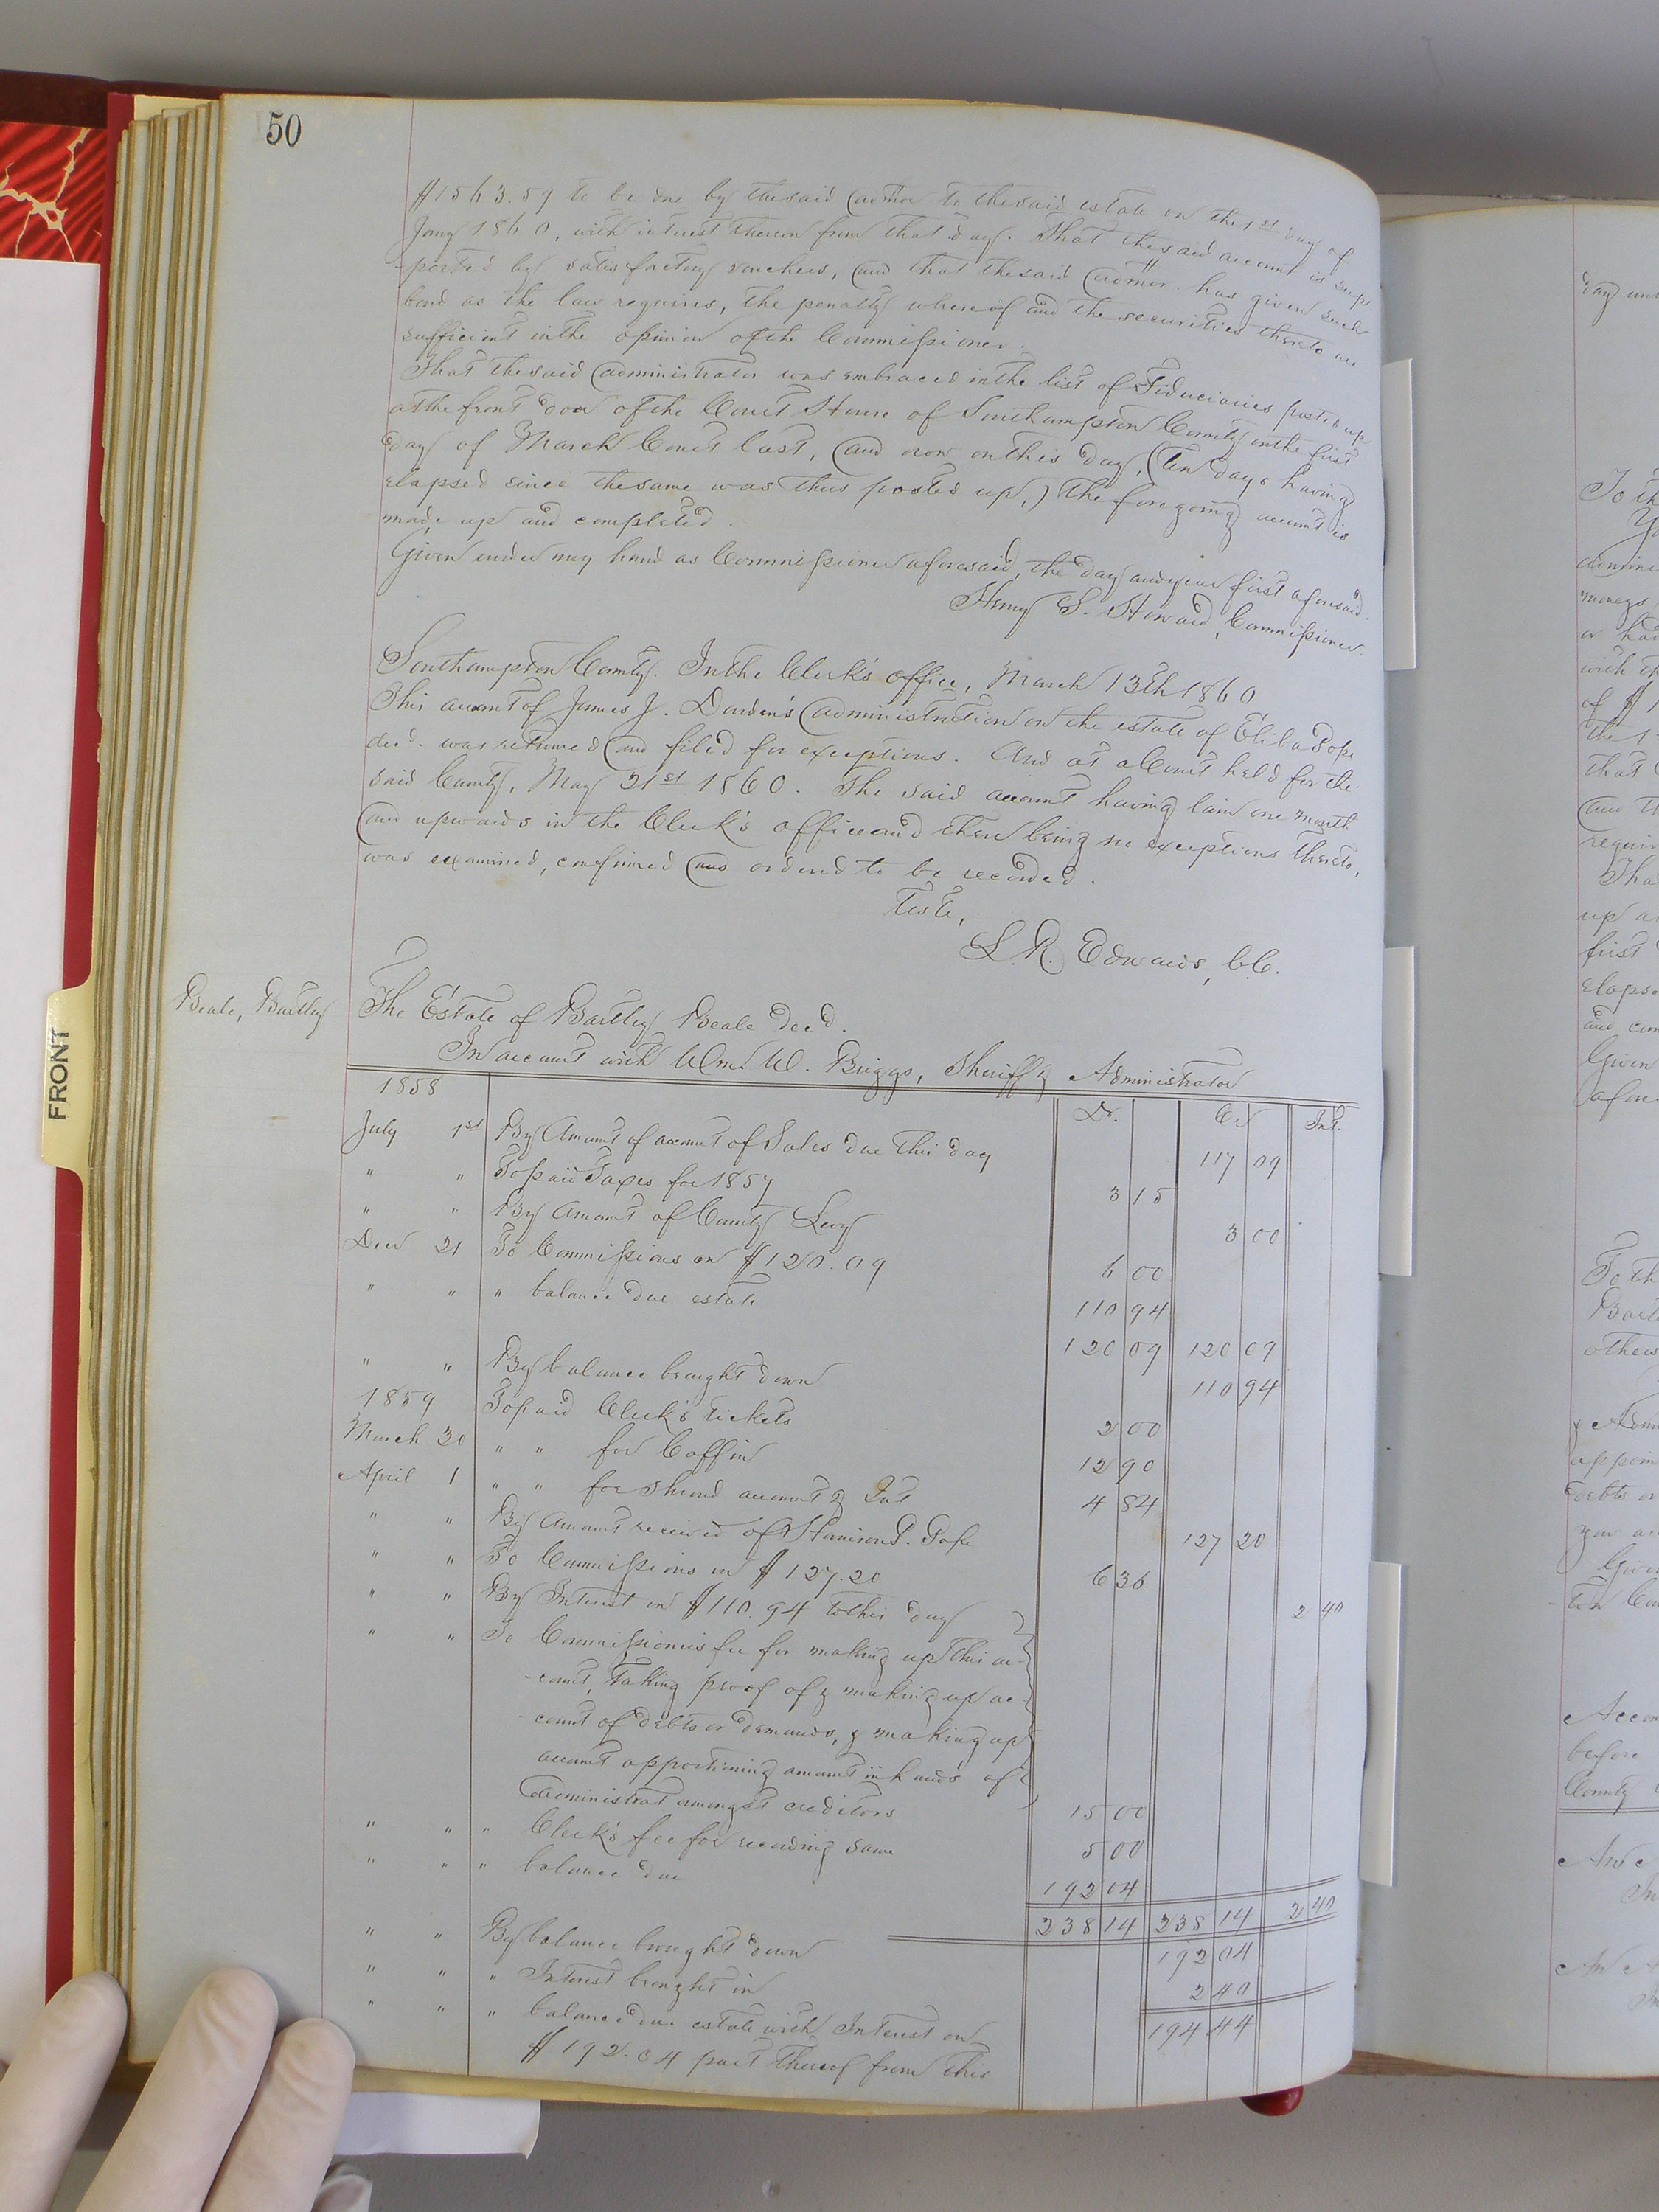 50
$1563.59 to be due by the said admor to the said estate on the 1st day of
Jany 1860, with interest thereon from that day. That the said account is sup-
-ported by satisfactory vouchers, and that the said admor. has given such
bond as the law requires, the penalty whereof and the securities thereto are
sufficient in the opinion of the Commissioner.
That the said administrator was embraced in the list of Fiduciaries posted up
at the front door of the Court House of Southampton County on the first
day of March Court last, and now on this day, (ten days having
elapsed since the same was thus posted up,) the foregoing account is
made up and completed.
Given under my hand as Commissioner aforesaid, the day and year first aforesaid.
Henry S. Howard, Commissioner.
Southampton County. In the Clerk's office, March 13th 1860
This account of James J. Darden's administration on the estate of Eliba Pope
decd. was returned and filed for exceptions. And at a Court held for the
said County, May 21st 1860. The said account having lain one month
and upwards in the Clerk's office and there being no exceptions thereto,
was examined, confirmed and ordered to be recorded.
Teste,
L. R. Edwards, C.C.
Beale, Bartley
The Estate of Bartley Beale decd.
In account with Wm. W. Briggs, Sheriff & Administrator
1858 Dr. Cr Int.
July 1st By Amount of account of Sales due this day 117 09
" " To paid Taxes for 1857 3 15
" " By Amount of County Levy 3 00
Decr 21 To Commissions on $120.09 6 00
" " " balance due estate 110 94
120 09 120 09
" " By balance brought down 110 94
1859 To paid Clerk's tickets 2 00
March 30 " " for Coffin 12 90
April 1 " " for Shroud account & Int 4 84
" " By Amount received of Harrison P. Pope 127 20
" " To Commissions on $127.20 6 36
" " By Interest on $110.94 to this day 2 40
" " To Commissioners fee for making up this ac-
-count, taking proof of & making up ac-
-count of debts or demands, & making up
account apportioning amount in hands of
Administrat amongst creditors 15 00
" " " Clerk's fee for recording same 5 00
" " " balance due 192 04
238 14 238 14 2 40
" " By balance brought down 192 04
" " " Interest brought in 2 40
" " " balance due estate with Interest on 194 44
$192.04 part thereof from this
FRONT
day
To th
money
with th
of $1
the 1
that
and th
requir
Tha
up a
first
elapse
and com
Given
afore
To th
Bart
others
& Adm
appoin
debts or
Give
Accou
before
County